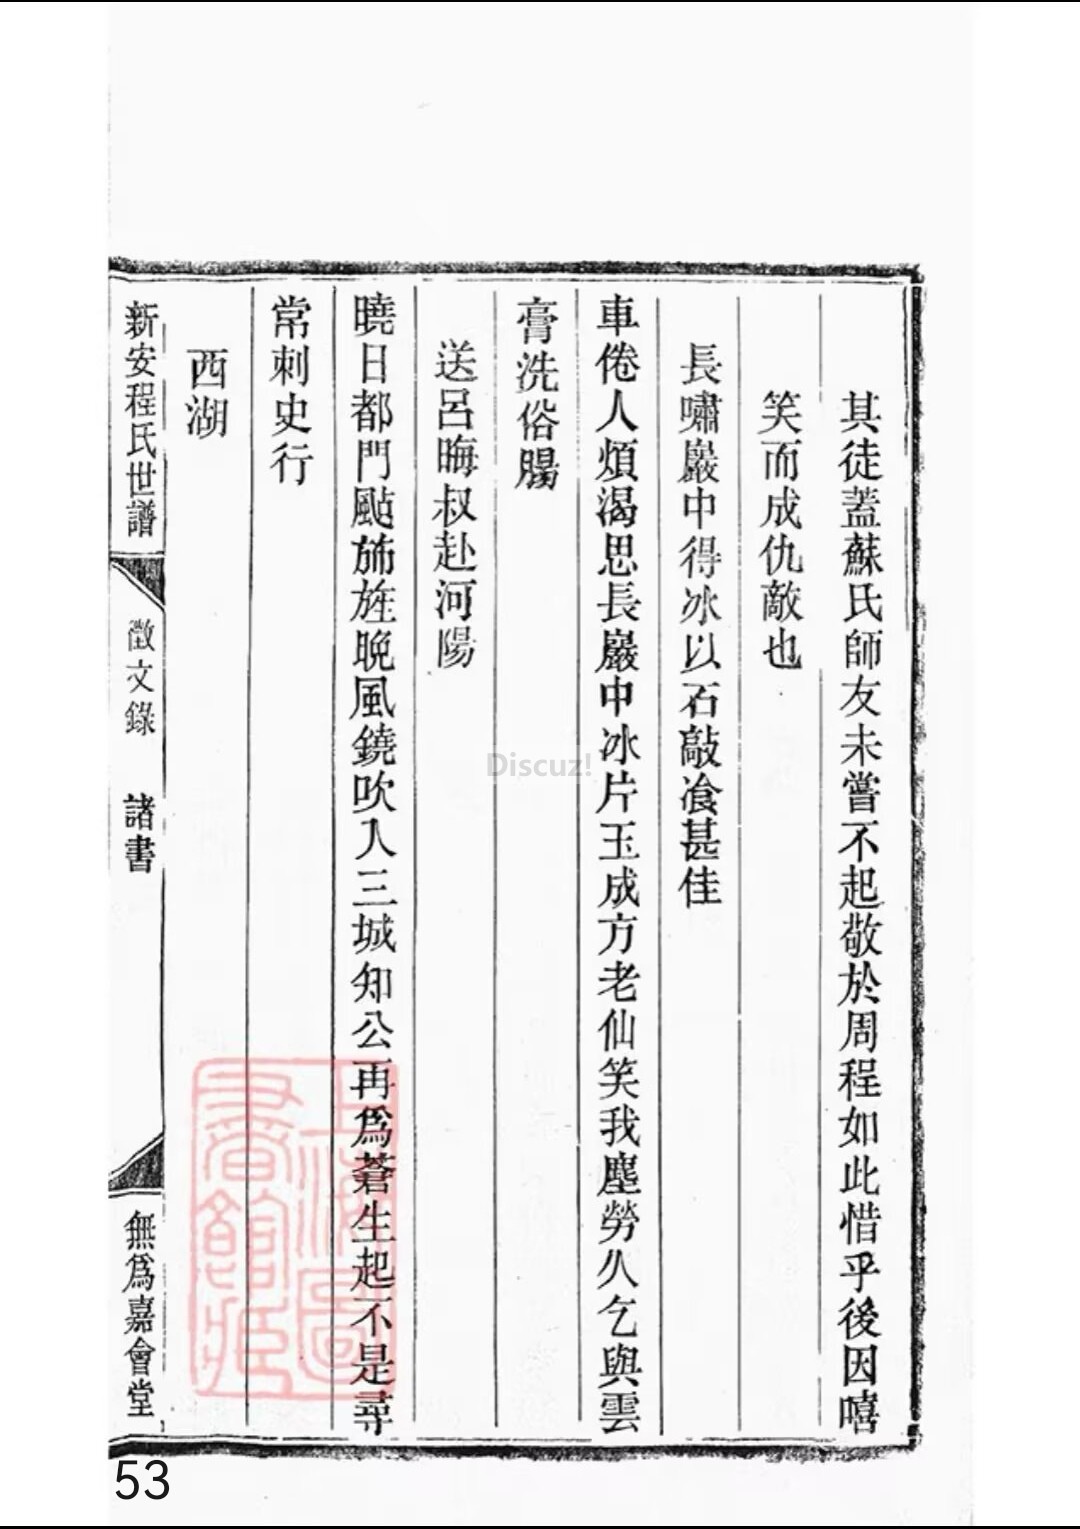 其徒蓋蘇氏師友未嘗不起敬於周程如此惜乎後因嘻
笑而成仇敵也
長嘯巖中得冰以石敲飡甚佳
車倦人煩渴思長巖中冰片玉成方老仙笑我塵勞久乞與雲
膏洗俗膓
送呂晦叔赴河陽
曉日都門颭旆旌晚風鐃吹入三城知公再爲蒼生起不是尋
常刺史行
西湖
新安程氏世譜
徵文錄
諸書
無爲嘉會堂
上海圖書館藏
Discuz!
53